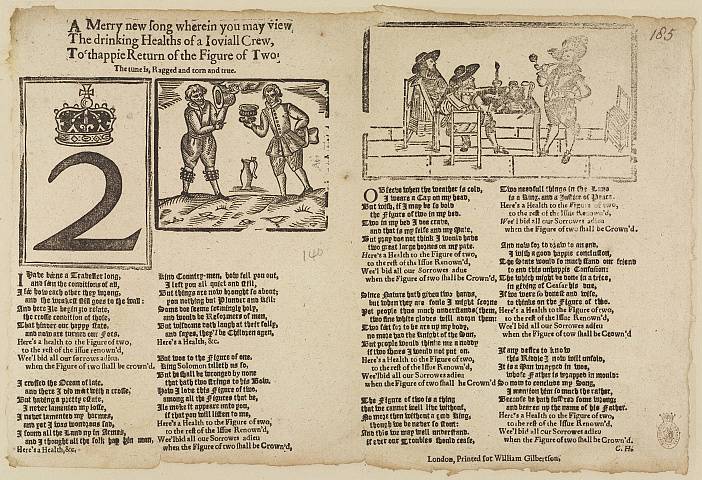 A Merry new song wherein you may view
The drinking Healths of a Joviall Crew,
To'thappie Return of the Figure of Two.
The tune is, Ragged and torn and true.
185
2
140
I Have béene a Traveller long,
and séen the conditions of all,
I sée how each other they wrong,
and the weakest still goes to the wall:
And here Ile begin to relate,
the crosse condition of those,
That hinder our happy state,
and now are turned our Foes.
Here's a health to the Figure of two,
to the rest of the issue renown'd,
Wée'l bid all our sorrowes adieu
when the Figure of two shall be crown'd.
I crossed the Ocean of late,
and there I did mét with a crosse,
But having a pretty estate,
I never lamented my losse,
I never lamented my harmes,
and yet I was wondrous sad,
I found all the Land up in Armes,
and I thought all the folk had bin mad,
Here's a Health, &c.
Kind Country-men, how fell you out,
I left you all quiet and still,
But things are now brought so about;
you nothing but Plunder and kill:
Some doe séem séemingly holy,
and would be Reformers of men,
But wisedome doth laugh at their folly,
and sayes, they'l be Children agen,
Here's a Health, &c.
But woe to the Figure of One,
King Solomon telleth us so,
But he shall be wronged by none
that hath two Strings to his Bow.
How I love this Figure of two,
among all the Figures that be,
Ile make it appeare unto you,
if that you will listen to me,
Here's a Health to the Figure of two,
to the rest of the Issue renown'd,
Wee'lbid all our Sorrowes adieu
when the Figure of two shall be Crown'd,
OBserve when the weather is cold,
I weare a Cap on my head,
But wish, if I may be so bold
the Figure of two in my bed.
Two in my bed I doe crave,
and that is my selfe and my Mate,
But pray doe not think I would have
two great large hornes on my pate.
Here's a Health to the Figure of two,
to the rest of the Issue Renown'd,
Wee'l bid all our Sorrowes adue
when the Figure of two shall be Crown'd,
Since Nature hath given two hands,
but when they are foule I might scorne
Yet people thus much understands them,
two fine white gloves will adorn them:
Two féet for to be are up my body,
no more had the Knight of the Sun,
But people would thinke me a noddy
if two shoes I would not put on.
Here's a Health to the Figure of two,
to the rest of the Issue Renown'd,
Wée'lbid all our Sorrowes adieu
when the Figure of two shall be Crown'd
The Figure of two is a thing
that we cannot well live without,
No more than without a good King,
though we be never so stout:
And this we may well understand,
if ever our troubles should cease,
Two néedfull things in the Land
is a King, and a Justice of Peace.
Here's a Health to the Figure of two,
to the rest of the Issue Renown'd,
Wee'l bid all our Sorrowes adieu
when the Figure of two shall be Crown'd.
And now for to draw to an end,
I wish a good happie conclusion,
The State would so much stand our friend
to end this unhappie Confusion:
The which might be done in a trice,
in giving of Cesar his due,
If we were so honest and wise,
to thinke on the Figure of two.
Here's a Health to the Figure of two,
to the rest of the Issue Renown'd,
Wee'l bid all our Sorrowes adieu
when the Figure of two shall be Crown'd
If any desire to know
this Riddle I now will unfold,
It is a Man wrapped in woe,
whose Father is wrapped in mould:
So now to conclude my Song,
I mention him so much the rather,
Because he hath suffered some wrong;
and beares up the name of his Father.
Here's a Health to the Figure of two,
to the rest of the Issue Renown'd,
Wee'l bid all our Sorrowes adieu
when the Figure of two shall be Crown'd.
C. H.
London, Printed for William Gilbertson.